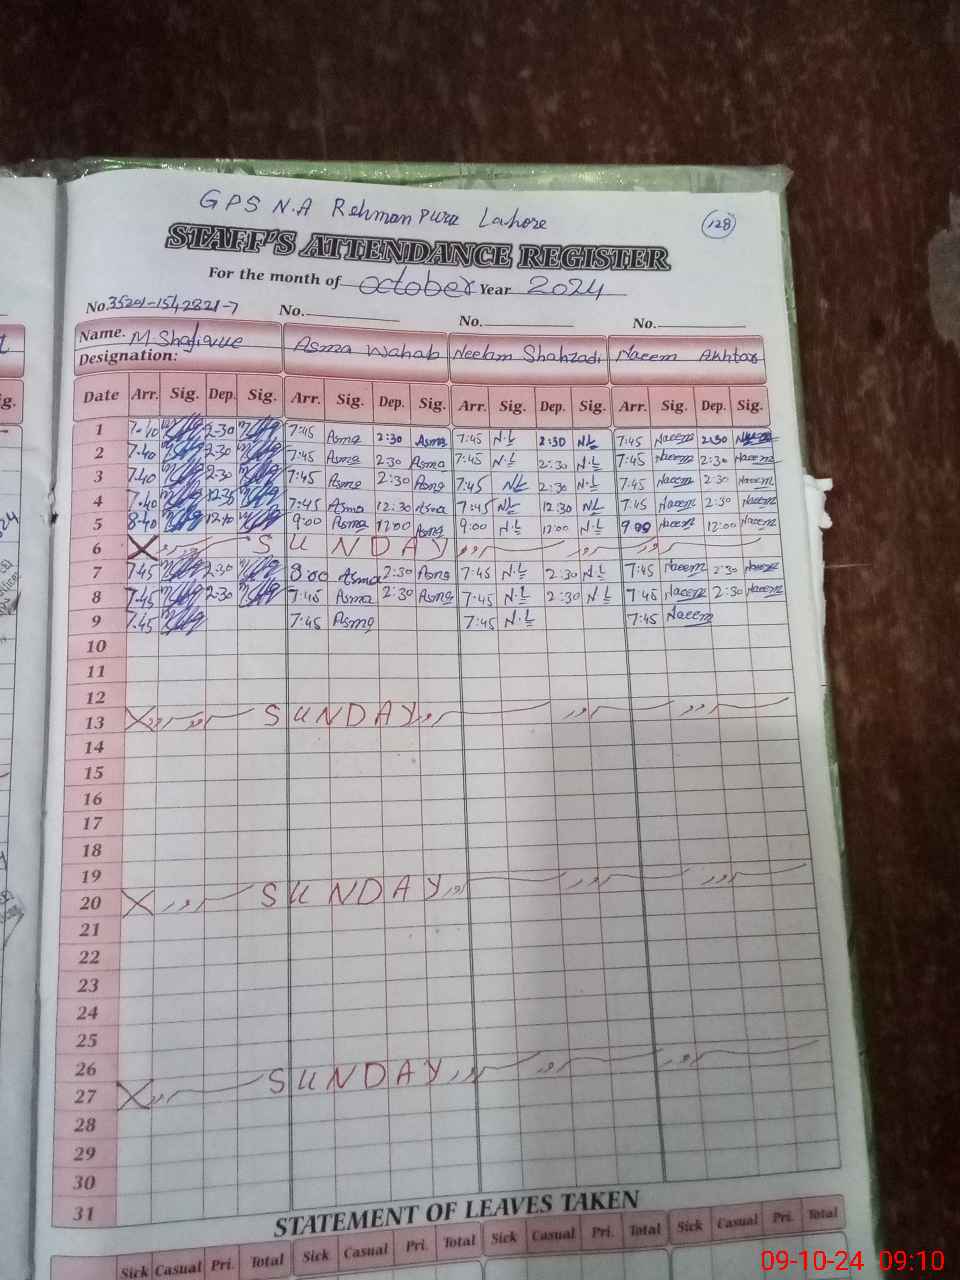 GPS N.A Rehmanpura Lahore
128
STAFF'S ATTENDANCE REGISTER
For the month of October Year 2024
No. 35201-1542821-7 No. No. No.
Name. M Shafique Asma Wahab Neelam Shahzadi Naeem Akhtar
Designation:
Date Arr. Sig. Dep. Sig. Arr. Sig. Dep. Sig. Arr. Sig. Dep. Sig. Arr. Sig. Dep. Sig.
1 7.40 2.30 7:45 Asma 2:30 Asma 7:45 N.L 2:30 NL 7:45 Naeem 2:30
2 7.40 2.30 7:45 Asma 2:30 Asma 7:45 N.L 2:30 N.L 7:45 Naeem 2:30 Naeem
3 7.40 2.30 7:45 Asma 2:30 Asma 7:45 NL 2:30 N.L 7:45 Naeem 2:30 Naeem
4 7.40 7:45 Asma 12:30 Asma 7:45 NL 12:30 NL 7:45 Naeem 2:30 Naeem
5 8.40 9:00 Asma 12:00 Asma 9:00 N.L 12:00 N.L 9:00 Naeem 12:00 Naeem
6 X SUNDAY
7 7.45 2.30 8:00 Asma 2:30 Asma 7:45 N.L 2:30 N.L 7:45 Naeem 2:30 Naeem
8 7.45 2.30 7:45 Asma 2:30 Asma 7:45 N.L 2:30 N.L 7:45 Naeem 2:30 Naeem
9 7.45 7:45 Asma 7:45 N.L 7:45 Naeem
10
11
12
13 X SUNDAY
14
15
16
17
18
19
20 X SUNDAY
21
22
23
24
25
26
27 X SUNDAY
28
29
30
31
STATEMENT OF LEAVES TAKEN
Sick Casual Pri. Total Sick Casual Pri. Total Sick Casual Pri. Total Sick Casual Pri. Total
09-10-24 09:10